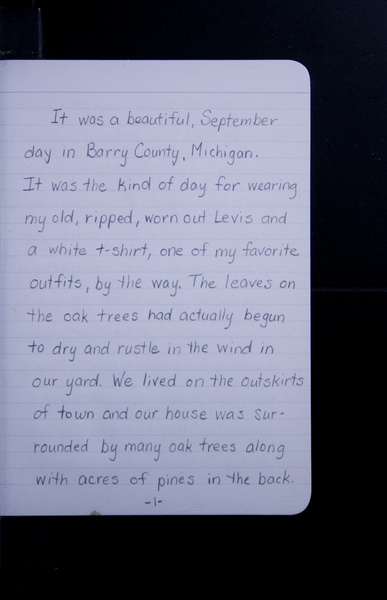 It was a beautiful, September
day in Barry County, Michigan.
It was the kind of day for wearing
my old, ripped, worn out Levis and
a white t-shirt, one of my favorite
outfits, by the way. The leaves on
the oak trees had actually begun
to dry and rustle in the wind in
our yard. We lived on the outskirts
of town and our house was sur-
rounded by many oak trees along
with acres of pines in the back.
-1-